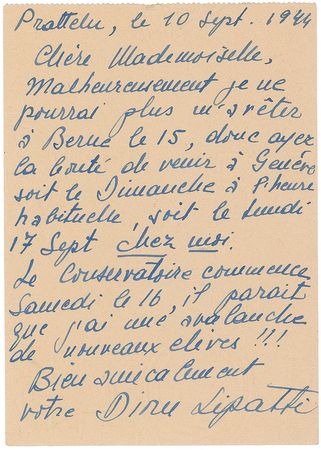 Pratteln, le 10 Sept. 1944
Chère Mademoiselle,
Malheureusement je ne
pourrai plus m'arrêter
à Berne le 15, donc ayez
la bonté de venir à Genève
soit le Dimanche à l'heure
habituelle, soit le lundi
17 Sept chez moi.
Le Conservatoire commence
Samedi le 16, il parait
que j'ai une avalanche
de nouveaux elèves !!!
Bien amicalement
votre Dinu Lipatti